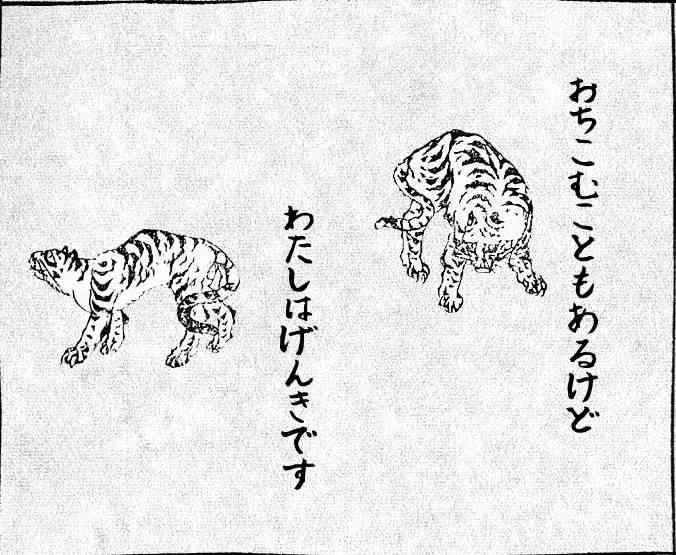 おちこむこともあるけど
わたしはげんきです